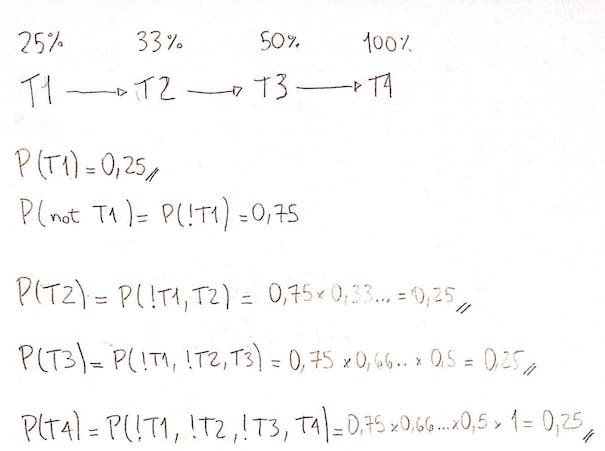 25% 33% 50% 100%
T1 → T2 → T3 → T4
P(T1) = 0,25
P(not T1) = P(!T1) = 0,75
P(T2) = P(!T1, T2) = 0,75 × 0,33... = 0,25
P(T3) = P(!T1, !T2, T3) = 0,75 × 0,66.. × 0.5 = 0,25
P(T4) = P(!T1, !T2, !T3, T4) = 0,75 × 0,66... × 0,5 × 1 = 0,25